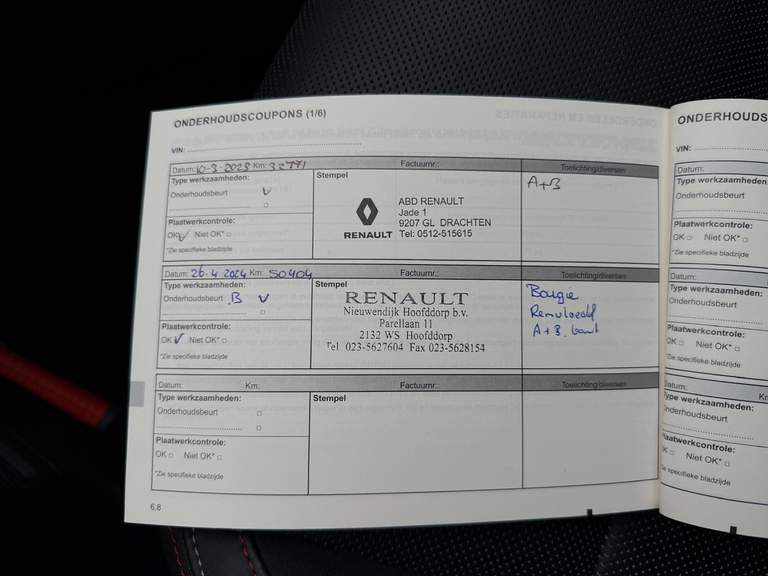 ONDERHOUDSCOUPONS (1/6)
VIN:
Datum: 10-3-2023 Km: 32771 Factuurnr.: Toelichting/diversen
Type werkzaamheden:
Onderhoudsbeurt V
Plaatwerkcontrole:
OK V Niet OK* □
*Zie specifieke bladzijde
Stempel
RENAULT
ABD RENAULT
Jade 1
9207 GL DRACHTEN
Tel: 0512-515615
A+B
Datum: 26.4 2024 Km: 50404 Factuurnr.: Toelichting/diversen
Type werkzaamheden:
Onderhoudsbeurt B V
Plaatwerkcontrole:
OK V Niet OK* □
*Zie specifieke bladzijde
Stempel
RENAULT
Nieuwendijk Hoofddorp b.v.
Parellaan 11
2132 WS Hoofddorp
Tel. 023-5627604 Fax 023-5628154
Bougie
Remvloeistof
A+B. beurt
Datum: Km: Factuurnr.: Toelichting/diversen
Type werkzaamheden:
Onderhoudsbeurt □
Plaatwerkcontrole:
OK □ Niet OK* □
*Zie specifieke bladzijde
Stempel
6.8
ONDERHOUDS
VIN:
Datum:
Type werkzaamheden:
Onderhoudsbeurt
Plaatwerkcontrole:
OK □ Niet OK* □
*Zie specifieke bladzijde
Datum:
Type werkzaamheden:
Onderhoudsbeurt
Plaatwerkcontrole:
OK □ Niet OK* □
*Zie specifieke bladzijde
Datum: Km
Type werkzaamheden:
Onderhoudsbeurt
Plaatwerkcontrole:
OK □ Niet OK* □
*Zie specifieke bladzijde